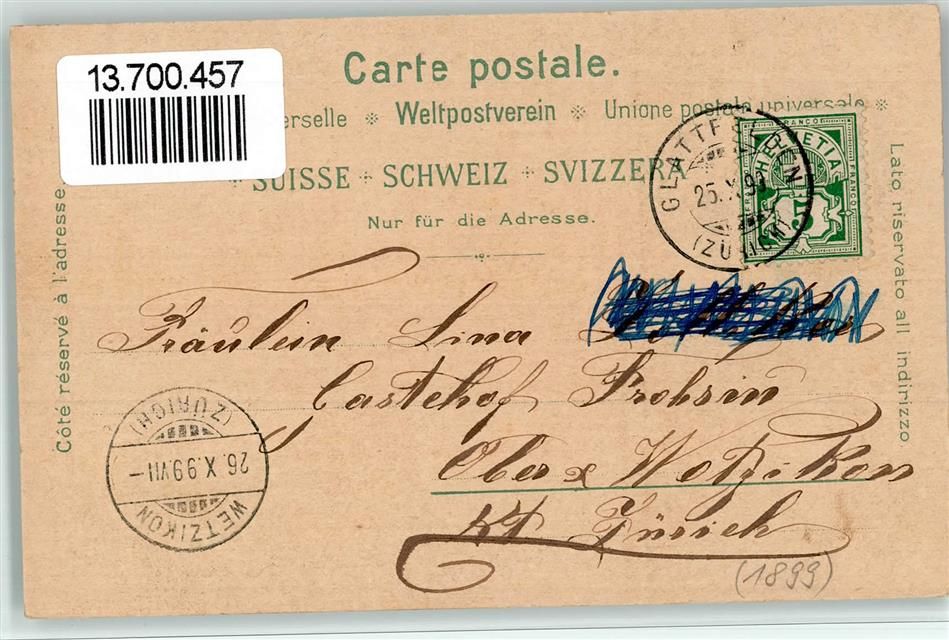 13.700.457
Carte postale.
erselle * Weltpostverein * Unione postale universale *
* SUISSE + SCHWEIZ + SVIZZERA
Nur für die Adresse.
Côté réservé à l'adresse
Lato riservato all indirizzo
FRANCO
HELVETIA
FRANCO
5
GLATTFELDEN
25. X. 9
(ZÜRICH)
Fräulein Lina
Gasthof Frohsin
Ober Wetzikon
Kt Zürich
(1899)
(ZÜRICH)
26. X. 99. VII –
WETZIKON